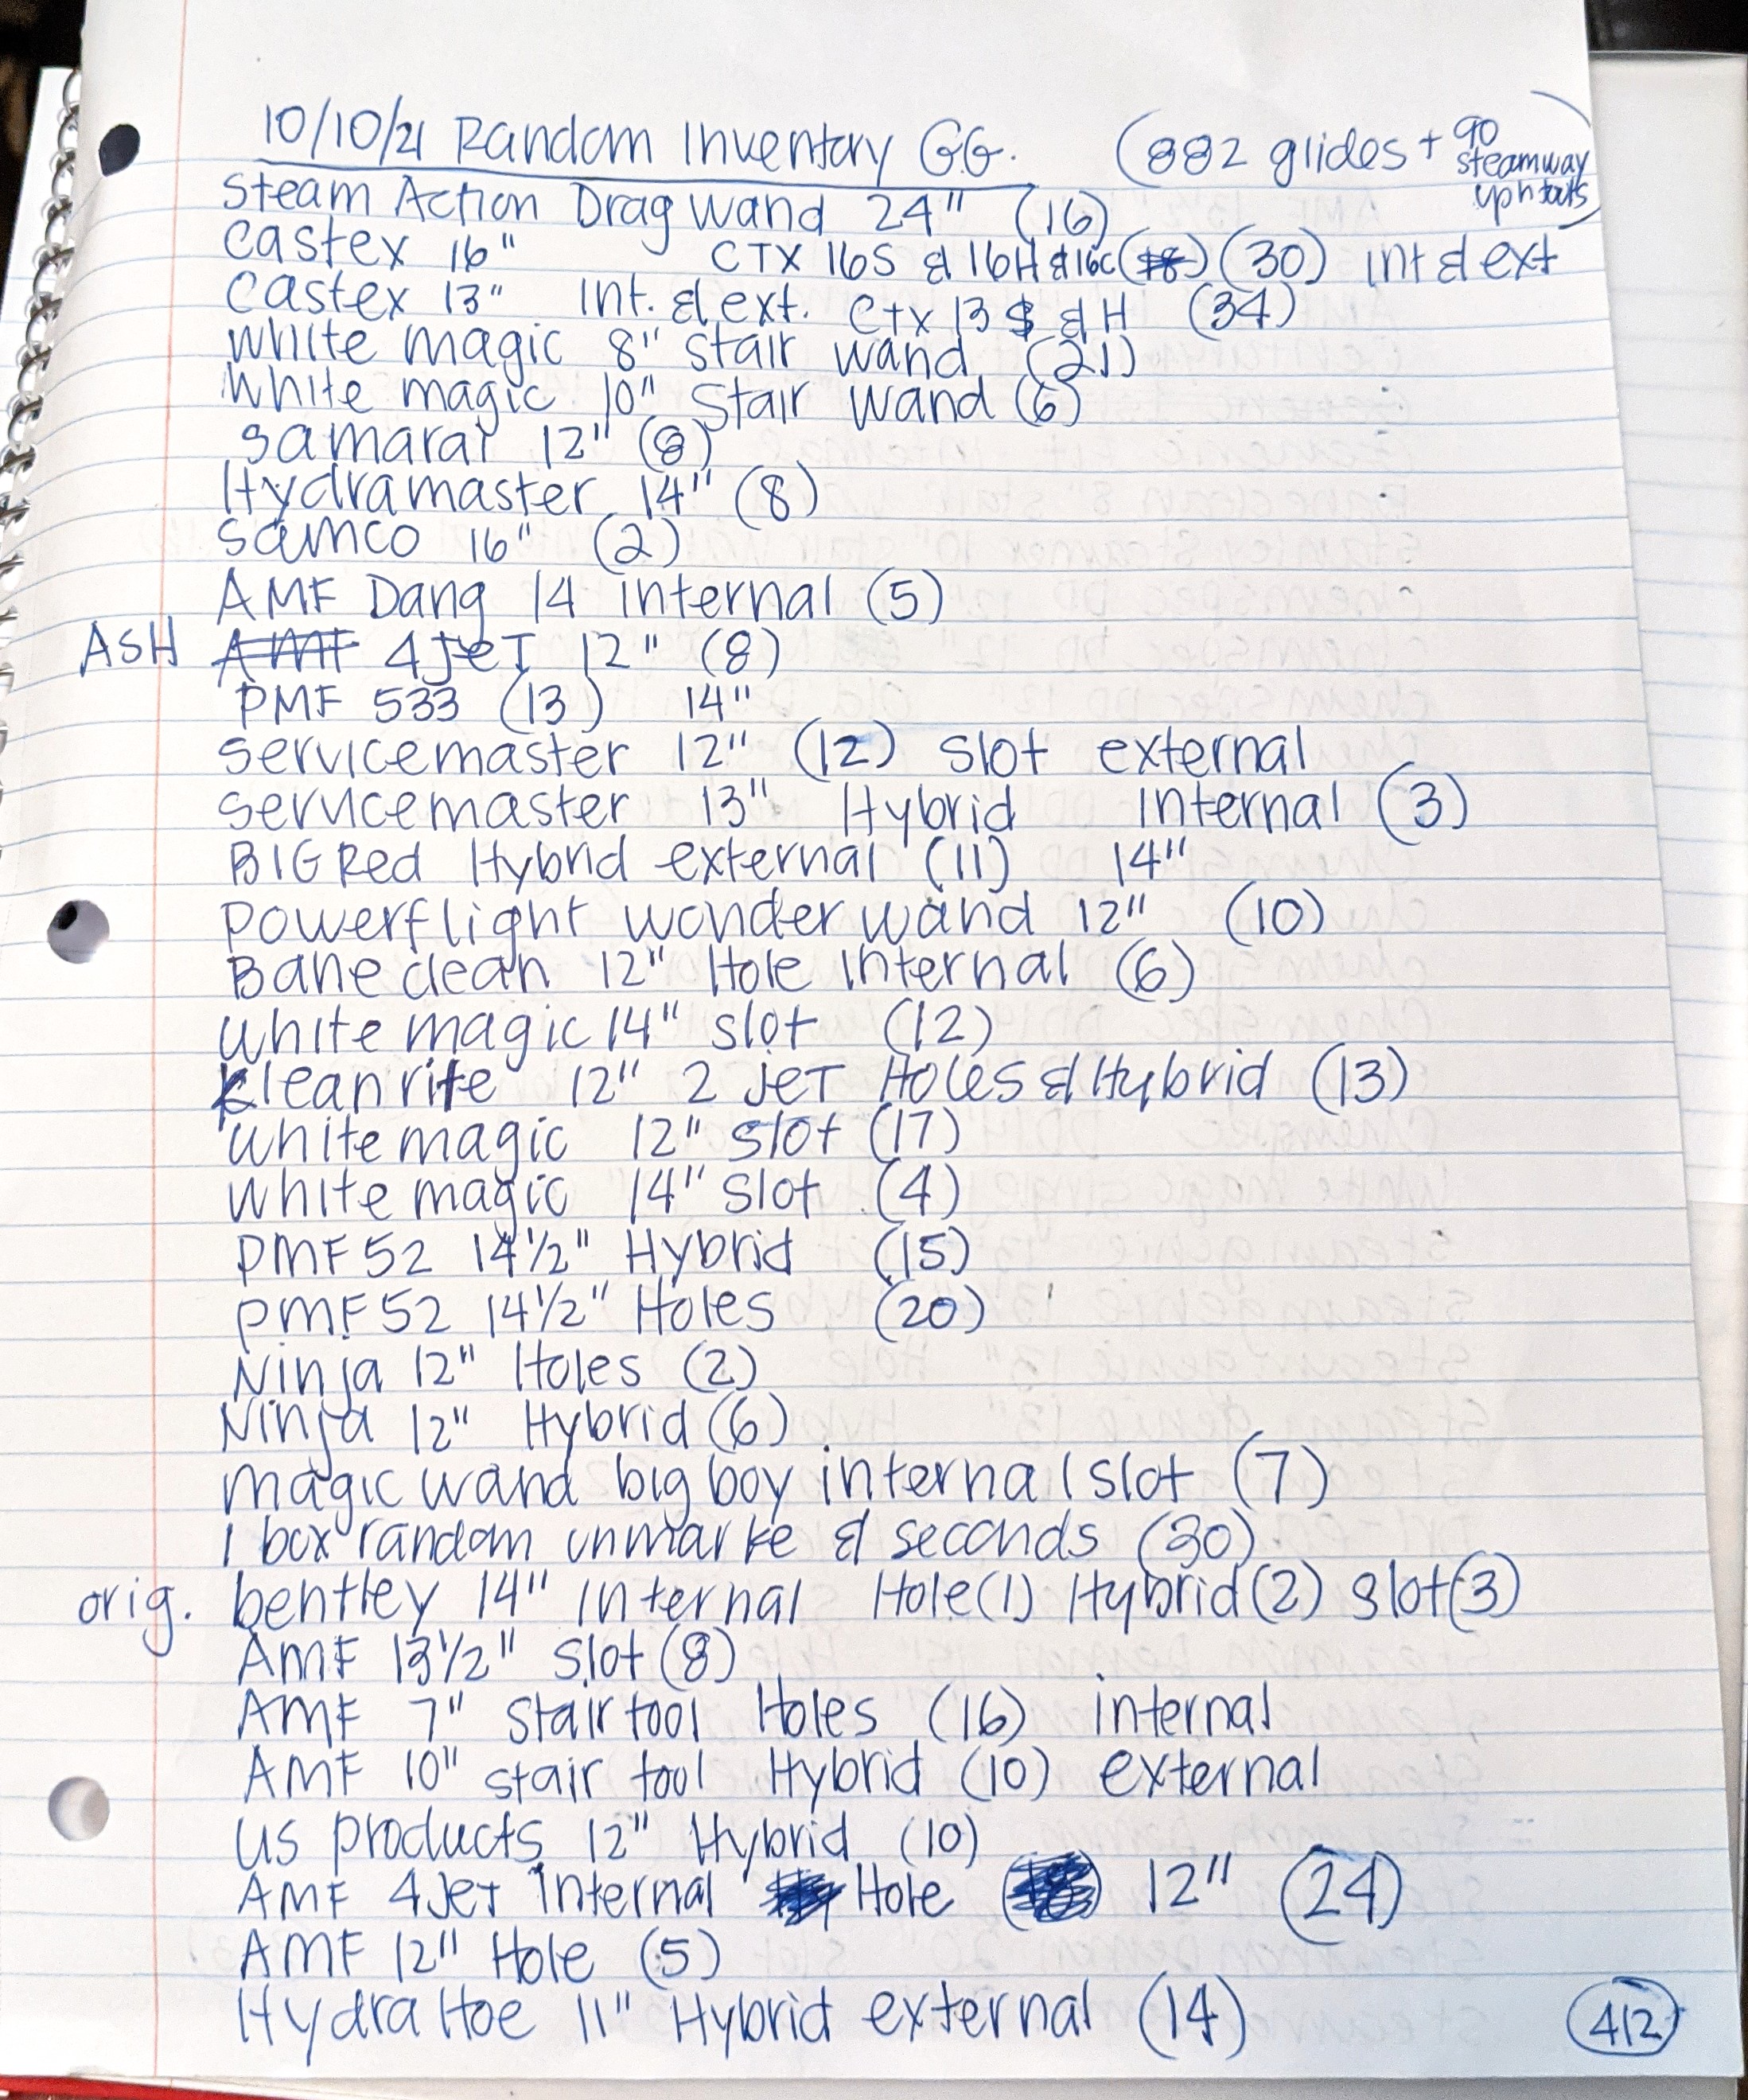 10/10/21 Random Inventory GG. (882 glides + 90 steamway uph tools)
Steam Action Drag wand 24" (16)
Castex 16" CTX 16S & 16H & 16C (30) int & ext
Castex 13" Int. & ext. Ctx 13 S & H (34)
white magic 8" stair wand (21)
White magic 10" Stair Wand (6)
samarai 12" (8)
Hydramaster 14" (8)
samco 16" (2)
AMF Dang 14 internal (5)
ASH AMF 4JET 12" (8)
PMF 533 (13) 14"
servicemaster 12" (12) slot external
servicemaster 13" Hybrid Internal (3)
BIG Red Hybrid external (11) 14"
powerflight wonder wand 12" (10)
Bane clean 12" Hole Internal (6)
white magic 14" slot (12)
kleanrite 12" 2 JET HOLES & Hybrid (13)
white magic 12" slot (17)
white magic 14" slot (4)
PMF 52 14 1/2" Hybrid (15)
PMF 52 14 1/2" Holes (20)
Ninja 12" Holes (2)
Ninja 12" Hybrid (6)
magic wand big boy internal slot (7)
1 box random unmarke & seconds (30)
orig. bentley 14" Internal Hole (1) Hybrid (2) slot (3)
AMF 13 1/2" slot (8)
AMF 7" stair tool Holes (16) internal
AMF 10" stair tool Hybrid (10) external
US products 12" Hybrid (10)
AMF 4Jet Internal Hole 12" (24)
AMF 12" Hole (5)
Hydra Hoe 11" Hybrid external (14)
412